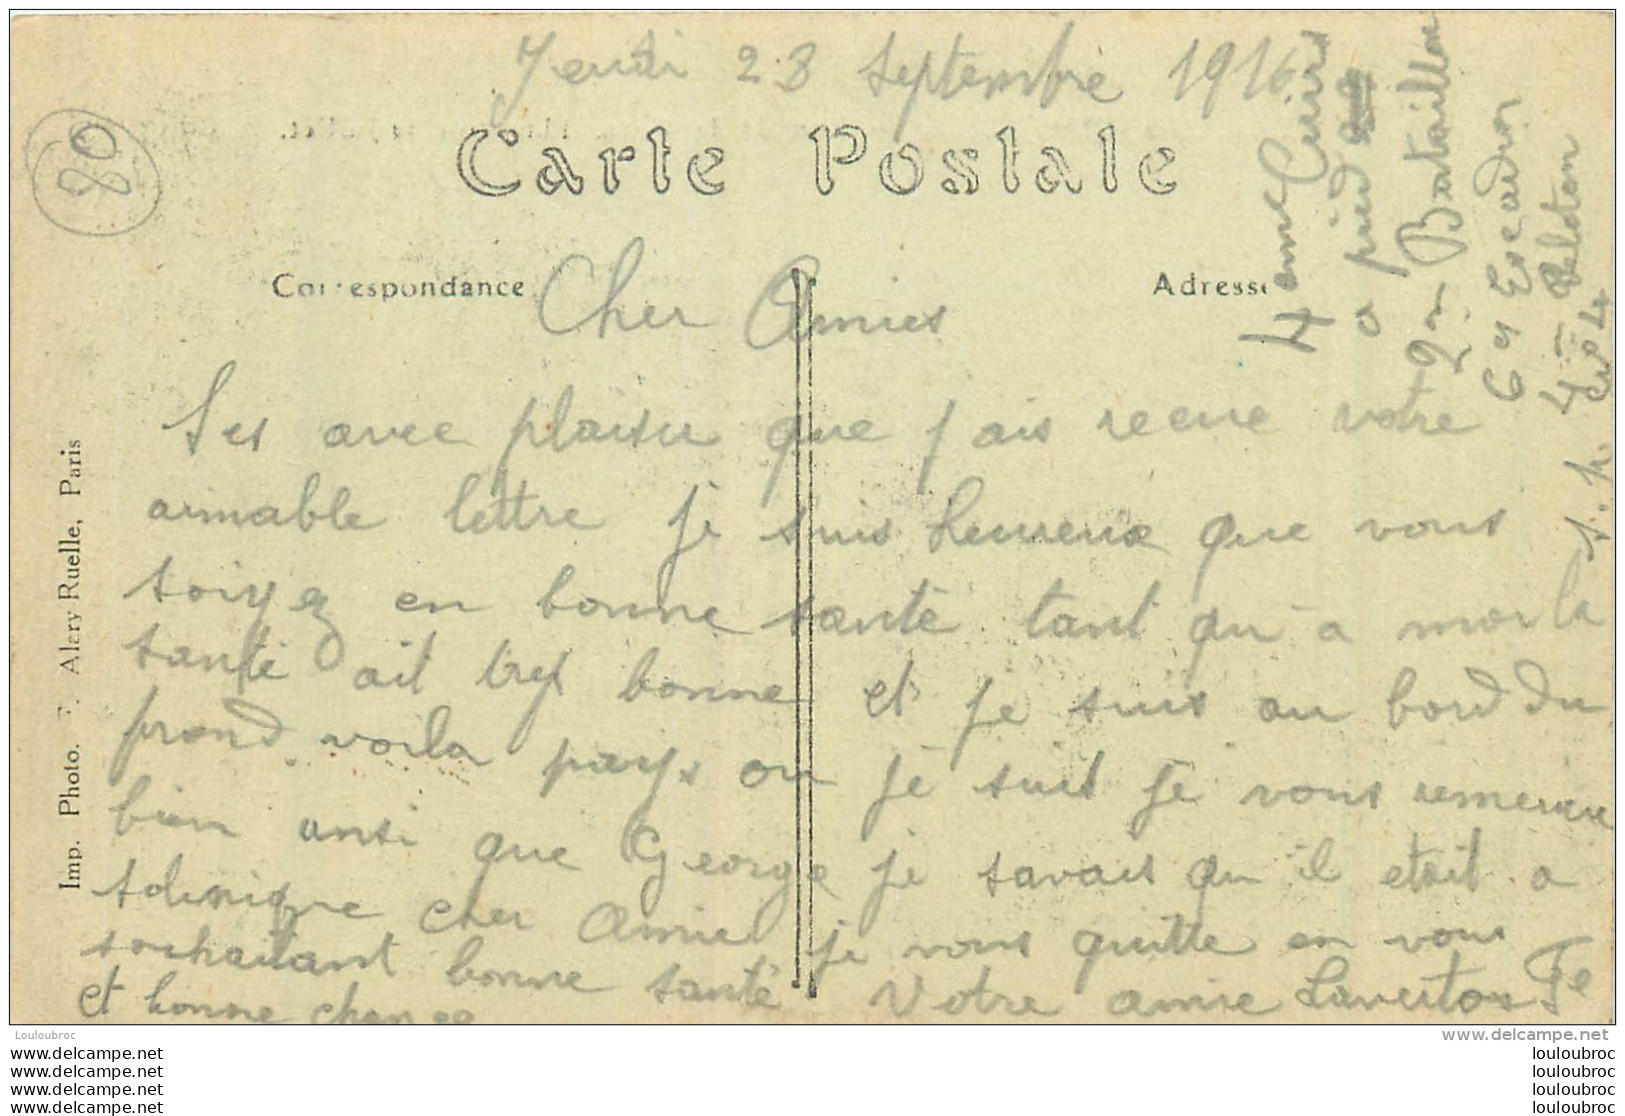 Jeudi 28 septembre 1916
80
Carte Postale
Correspondance
Adresse
4eme Cuirs
a pied
2me Bataillon
6e Escadron
4e Peloton
Cher Amies
Ses avec plaisir que j ais recue votre
aimable lettre je suis heureux que vous
soiyez en bonne santé tant qu a moi la
santé ait tres bonne et je suis au bord du
frond voila pays ou je suis je vous remercie
bien ansi que George je savais qu il etait a
cher Amie je vous quitte en vous
souhaitant bonne santé Votre amie
et bonne chance
Imp. Photo. F. Alary-Ruelle, Paris
Louloubroc
www.delcampe.net
www.delcampe.net
www.delcampe.net
www.delcampe.net
www.delcampe.net
louloubroc
louloubroc
louloubroc
louloubroc